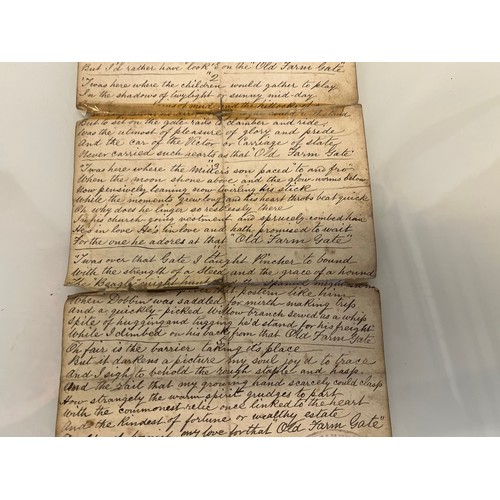 But I'd rather have "look'd on the "Old Farm Gate"
"2
'Twas here where the children would gather to play
In the shadows of twylight or sunny mid-day
and the hillocks of
But to sit on the gate rails to clamber and ride
Was the utmost of pleasure of glory and pride
And the car of the Victor or Carriage of state
Never carried such hearts as that "Old Farm Gate"
"3
'Twas here where the Miller's son paced to and fro
When the moon shone above and the glow worms below
Now pensively leaning now twirling his stick
While the moments grew long and his heart throbs beat quick
Oh why does he linger so restlessly there
In his church-going vestment and sprucely combed hair
He's in love He's in love and hath promised to wait
For the one he adores at that "Old Farm Gate"
'Twas over that Gate I taught Pincher to bound
With the strength of a Steed and the grace of a hound
Beagle might hunt the spaniel might swim
postern like him
When Dobbin was saddled for mirth-making trip
And a quickly-picked Willow branch served as a whip
Spite of hugging and tugging he'd stand for his freight
While I climbed on his back from that Old Farm Gate
5
Oh fair is the barrier taking its place
But it darkens a picture my soul joy'd to trace
And I sigh to behold the rough staple and hasp
And the rail that my growing hand scarcely could clasp
How strangely the warm spirit grudges to part
With the commonest relic once linked to the heart
And the kindest of fortune or wealthy estate
my love for that "Old Farm Gate"